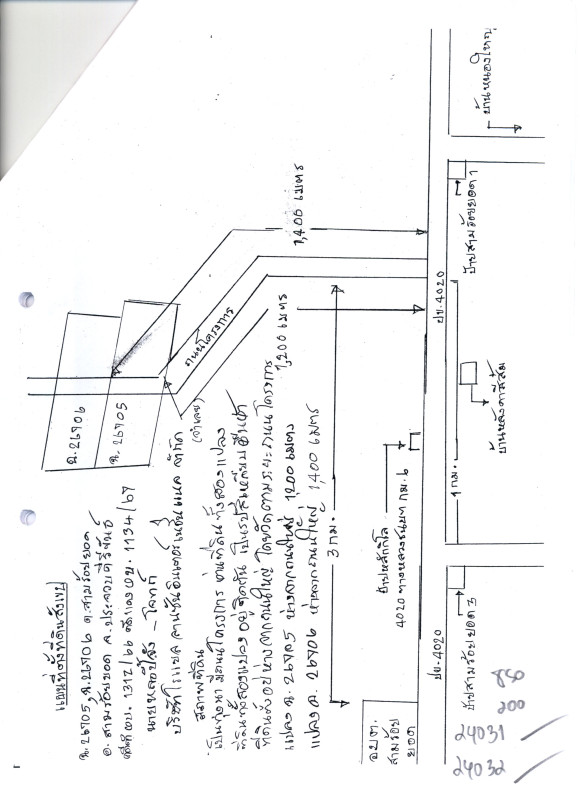 แผนที่ตั้งที่ดินสังเขป
ฉ.26705, ฉ.26706 ต.สามร้อยยอด
อ.สามร้อยยอด จ.ประจวบคีรีขันธ์
คดีที่ ผบ. 1312/66 คดีแดง ผบ. 1134/67
โจทก์
บริษัท จำกัด
(จำเลย)
สภาพที่ดิน
เป็นทุ่งนา มีถนนโครงการ ผ่านที่ดินทั้งสองแปลง
ที่ดินทั้งสองแปลงอยู่ติดกัน เป็นรูปสี่เหลี่ยมผืนผ้า
ที่ดินตั้งอยู่ห่างจากถนนใหญ่ โดยวัดตามระยะถนนโครงการ
แปลง ฉ. 26705 ห่างจากถนนใหญ่ 1,200 เมตร
แปลง ฉ. 26706 ห่างจากถนนใหญ่ 1400 เมตร
ฉ.26706
ฉ. 26705
ถนนโครงการ
1,400 เมตร
1,200 เมตร
3 กม.
ป้ายหลักกิโล
4020 ทางหลวงชนบท กม. 6
อบต.
สามร้อย
ยอด
ปข.4020
ปข.4020
1 กม.
ป้ายสามร้อยยอด 3
ป้ายสามร้อยยอด 1
บ้านหนองใหญ่
850
200
24031
24032